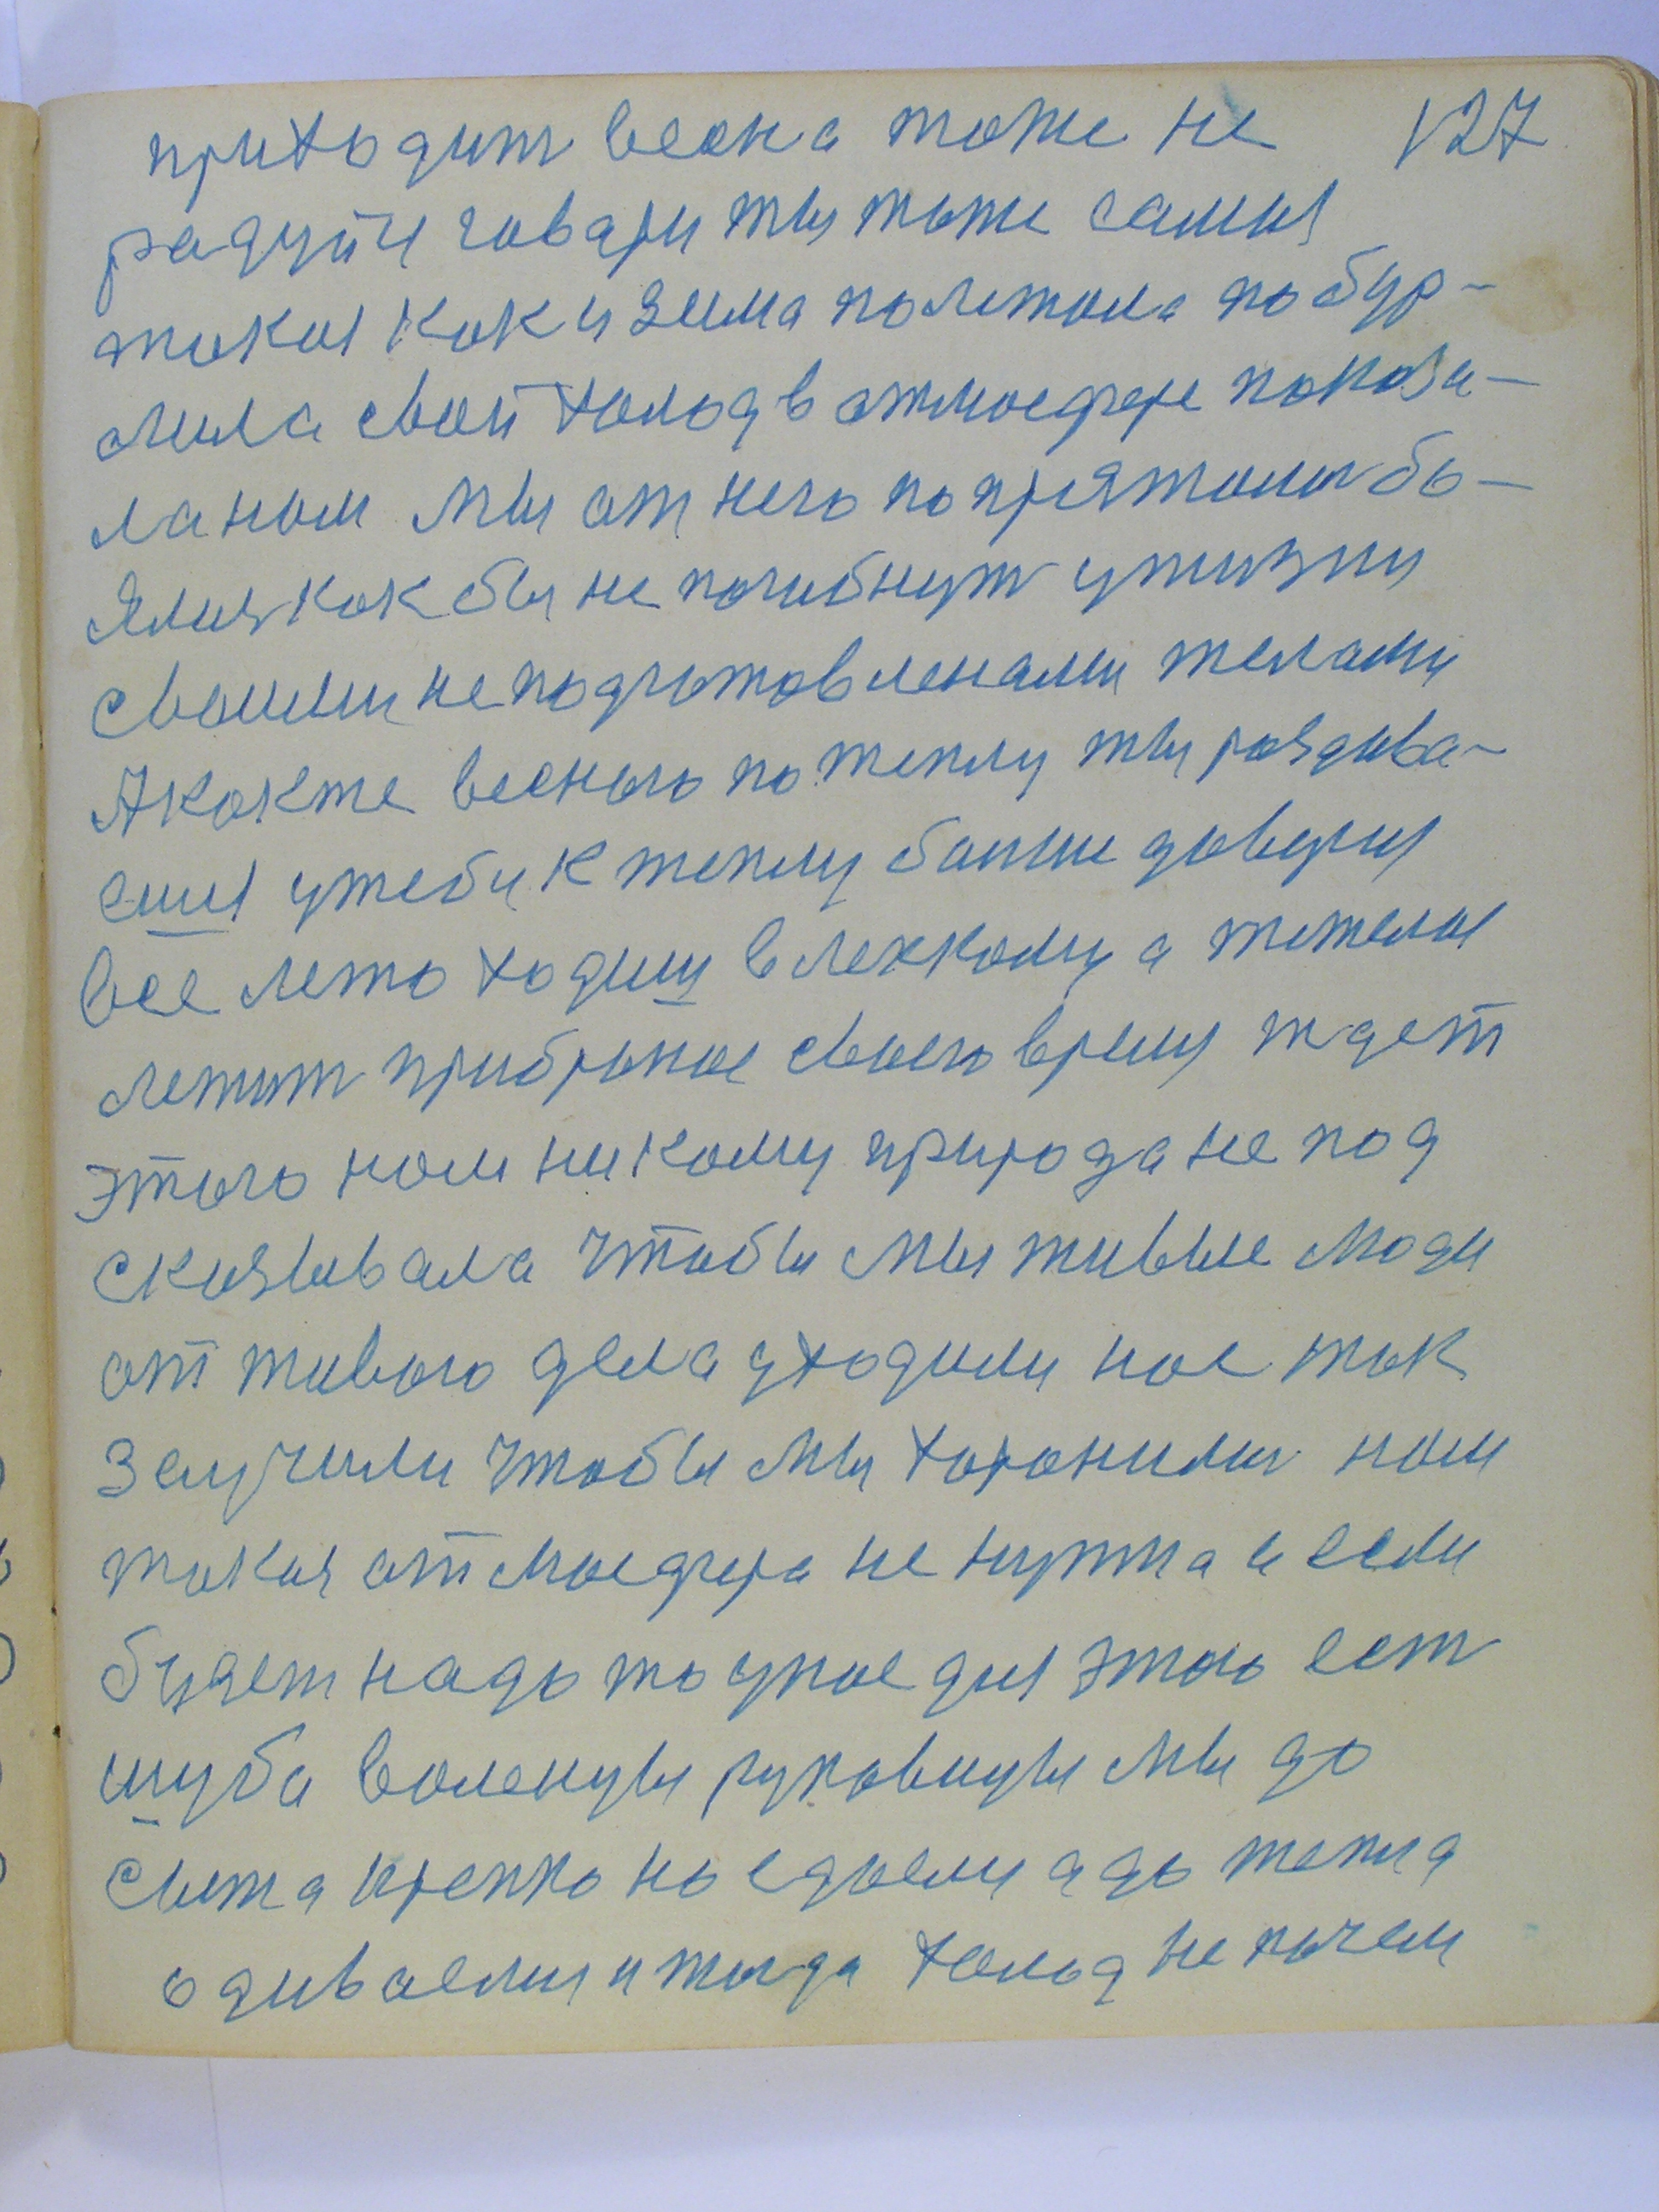 приходит весна тоже не 127
радуйти говари ты тоже самыя
такая как и зима полежала побур-
лила свой холод в атмосфере показа-
ла нам мы от него попрятались бо-
ялись как бы не погибнут у жизни
своими неподготовленами телами
А как же весного по теплу ты раздива-
ешся у тебя к теплу больше доверия
все лето ходиш в лехкому а тяжелое
лежит прибраное своего время ждет
этого нам никому природа не под
сказывала чтобы мы живые люди
от живого дела уходили нас так
заучили чтобы мы хоронились нам
такая отмосфера не нужна а если
будет надо то у нас для этого ест
шуба валенцы руковицы мы до
сыта крепко наедаемся а до тепла
одиваемся и тогда холод не почем